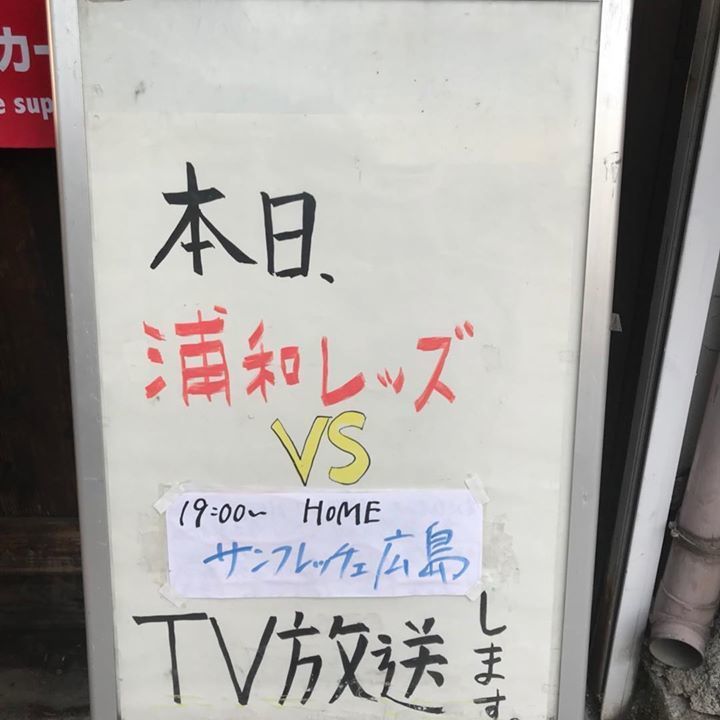 カー
e sup
本日、
浦和レッズ
VS
19:00~ HOME
サンフレッチェ広島
TV放送します。